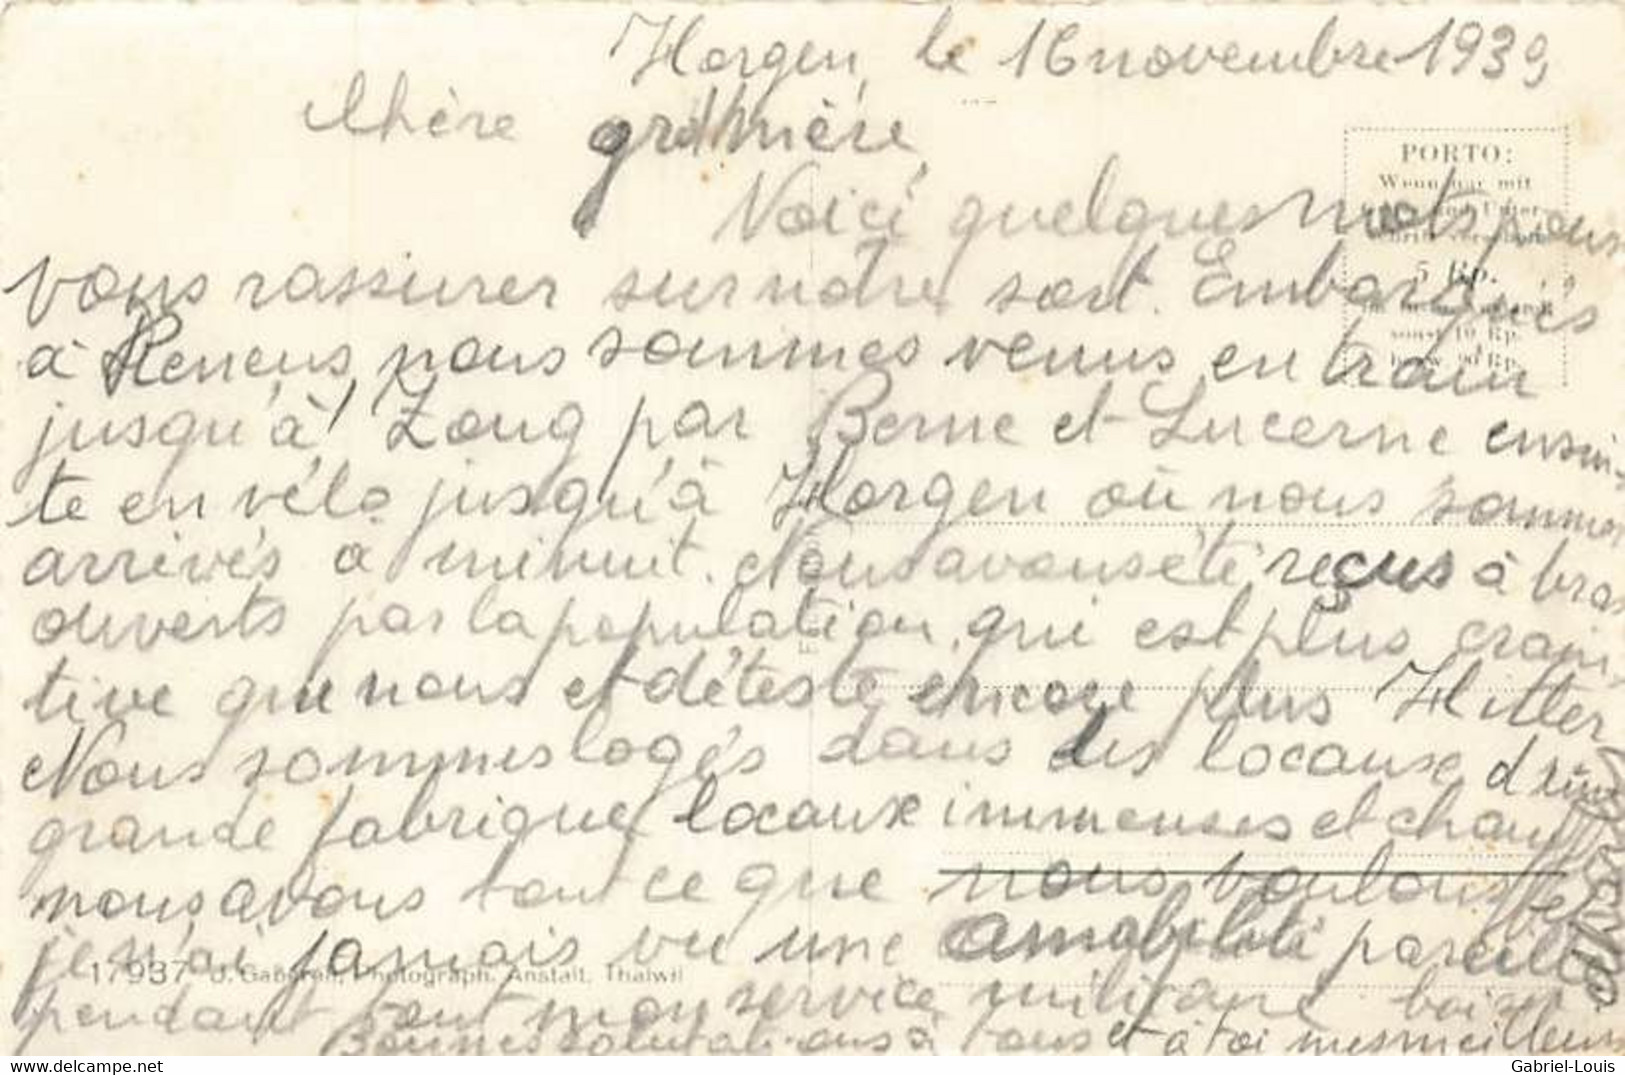 Horgen, le 16 novembre 1939
Chère grdmère,
PORTO:
Voici quelques mots pour
5 Rp.
vous rassurer sur notre sort. Embarqués
sonst 10 Rp.
à Renens, nous sommes venus en train
jusqu'à Zoug par Berne et Lucerne ensui-
te en vélo jusqu'à Horgen où nous sommes
arrivés à minuit. Nous avons été reçus à bras
ouverts par la population, qui est plus crain-
tive que nous et déteste encore plus Hitler
Nous sommes logés dans des locaux d'une
grande fabrique, locaux immenses et chauds
nous avons tout ce que nous voulons et
je n'ai jamais vu une amabilité pareille
17937 J. Gaberell, Photograph. Anstalt, Thalwil
pendant tout mon service militaire
Bonnes salutations à tous et à toi mes meilleurs
baisers
Gabriel-Louis